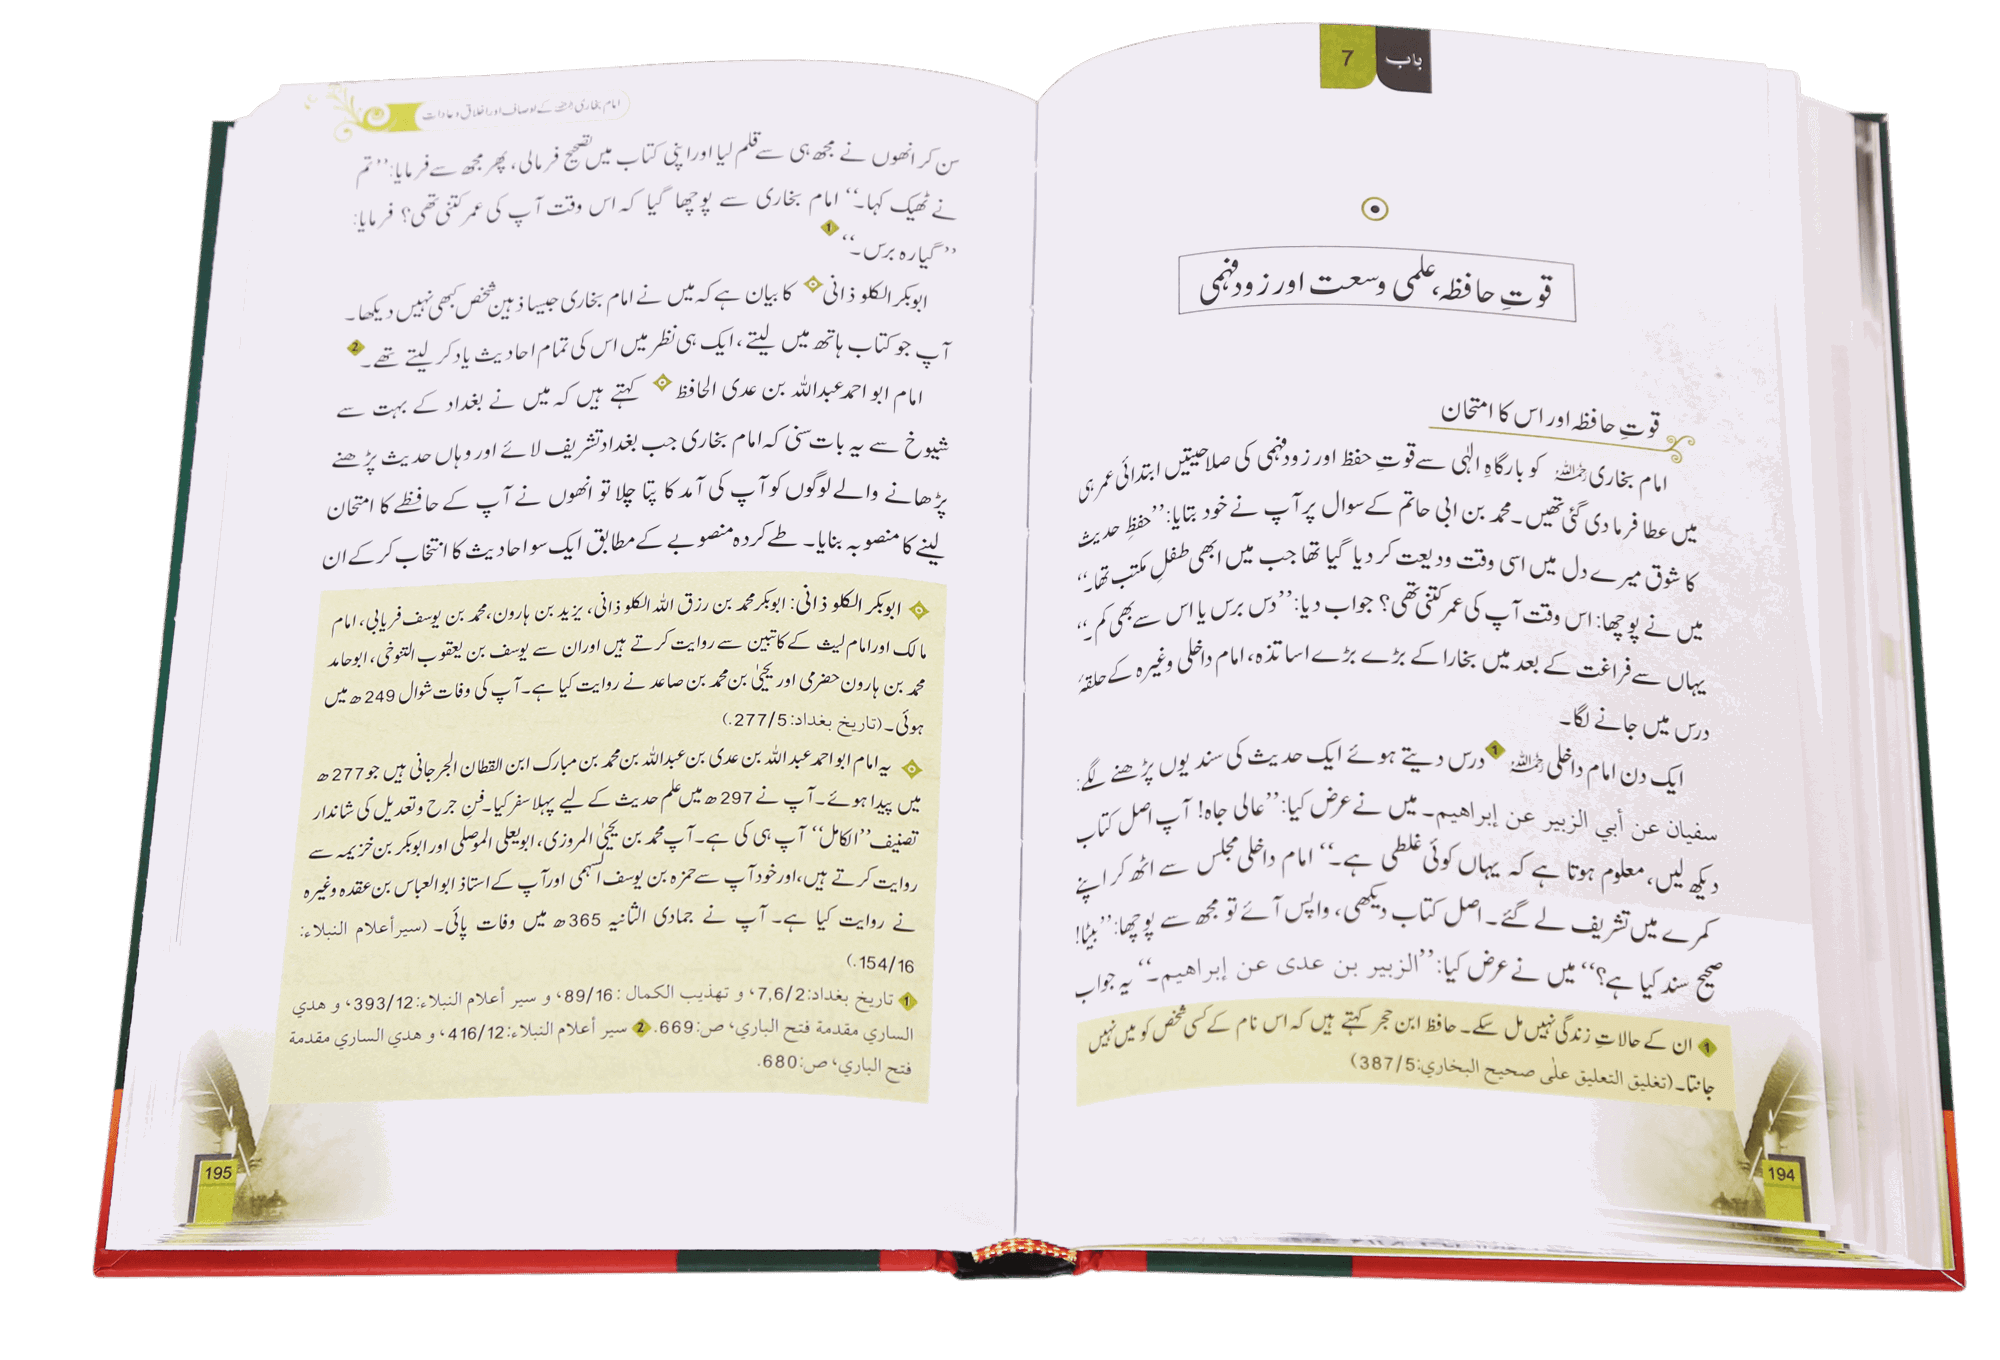 باب 7
قوتِ حافظہ، علمی وسعت اور زود فہمی
قوتِ حافظہ اور اس کا امتحان
امام بخاری رحمہ اللہ کو بارگاہِ الٰہی سے قوتِ حفظ اور زود فہمی کی صلاحیتیں ابتدائی عمر ہی
میں عطا فرما دی گئی تھیں۔ محمد بن ابی حاتم کے سوال پر آپ نے خود بتایا: ’’حفظِ حدیث
کا شوق میرے دل میں اسی وقت ودیعت کر دیا گیا تھا جب میں ابھی طفلِ مکتب تھا۔‘‘
میں نے پوچھا: اس وقت آپ کی عمر کتنی تھی؟ جواب دیا: ’’دس برس یا اس سے بھی کم۔‘‘
یہاں سے فراغت کے بعد میں بخارا کے بڑے بڑے اساتذہ، امام داخلی وغیرہ کے حلقۂ
درس میں جانے لگا۔
ایک دن امام داخلی رحمہ اللہ 1 درس دیتے ہوئے ایک حدیث کی سند یوں پڑھنے لگے:
سفيان عن أبي الزبير عن إبراهيم۔ میں نے عرض کیا: ’’عالی جاہ! آپ اصل کتاب
دیکھ لیں، معلوم ہوتا ہے کہ یہاں کوئی غلطی ہے۔‘‘ امام داخلی مجلس سے اٹھ کر اپنے
کمرے میں تشریف لے گئے۔ اصل کتاب دیکھی، واپس آئے تو مجھ سے پوچھا: ’’بیٹا!
صحیح سند کیا ہے؟‘‘ میں نے عرض کیا: ’’الزبير بن عدى عن إبراهيم۔‘‘ یہ جواب
1 ان کے حالاتِ زندگی نہیں مل سکے۔ حافظ ابن حجر کہتے ہیں کہ اس نام کے کسی شخص کو میں نہیں
جانتا۔ (تغليق التعليق على صحيح البخاري: 387/5)
194
امام بخاری رحمہ اللہ کے اوصاف اور اخلاق و عادات
سن کر انھوں نے مجھ ہی سے قلم لیا اور اپنی کتاب میں تصحیح فرمالی، پھر مجھ سے فرمایا: ’’تم
نے ٹھیک کہا۔‘‘ امام بخاری سے پوچھا گیا کہ اس وقت آپ کی عمر کتنی تھی؟ فرمایا:
’’گیارہ برس۔‘‘ 1
ابوبکر الکلوذانی کا بیان ہے کہ میں نے امام بخاری جیسا ذہین شخص کبھی نہیں دیکھا۔
آپ جو کتاب ہاتھ میں لیتے، ایک ہی نظر میں اس کی تمام احادیث یاد کر لیتے تھے۔ 2
امام ابو احمد عبداللہ بن عدی الحافظ کہتے ہیں کہ میں نے بغداد کے بہت سے
شیوخ سے یہ بات سنی کہ امام بخاری جب بغداد تشریف لائے اور وہاں حدیث پڑھنے
پڑھانے والے لوگوں کو آپ کی آمد کا پتا چلا تو انھوں نے آپ کے حافظے کا امتحان
لینے کا منصوبہ بنایا۔ طے کردہ منصوبے کے مطابق ایک سو احادیث کا انتخاب کر کے ان
ابوبکر الکلوذانی: ابوبکر محمد بن رزق اللہ الکلوذانی، یزید بن ہارون، محمد بن یوسف فریابی، امام
مالک اور امام لیث کے کاتبین سے روایت کرتے ہیں اور ان سے یوسف بن یعقوب التنوخی، ابو حامد
محمد بن ہارون حضرمی اور یحییٰ بن محمد بن صاعد نے روایت کیا ہے۔ آپ کی وفات شوال 249ھ میں
ہوئی۔ (تاریخ بغداد: 277/5.)
یہ امام ابو احمد عبداللہ بن عدی بن عبداللہ بن محمد بن مبارک ابن القطان الجرجانی ہیں جو 277ھ
میں پیدا ہوئے۔ آپ نے 297ھ میں علم حدیث کے لیے پہلا سفر کیا۔ فن جرح و تعدیل کی شاندار
تصنیف ’’الکامل‘‘ آپ ہی کی ہے۔ آپ محمد بن یحییٰ المروزی، ابو یعلی الموصلی اور ابوبکر بن خزیمہ سے
روایت کرتے ہیں، اور خود آپ سے حمزہ بن یوسف السہمی اور آپ کے استاذ ابو العباس بن عقدہ وغیرہ
نے روایت کیا ہے۔ آپ نے جمادی الثانیہ 365ھ میں وفات پائی۔ (سير أعلام النبلاء:
154/16.)
1 تاريخ بغداد: 7,6/2، و تهذيب الكمال: 89/16، و سير أعلام النبلاء: 393/12، و هدي
الساري مقدمة فتح الباري، ص: 669. 2 سير أعلام النبلاء: 416/12، و هدي الساري مقدمة
فتح الباري، ص: 680.
195